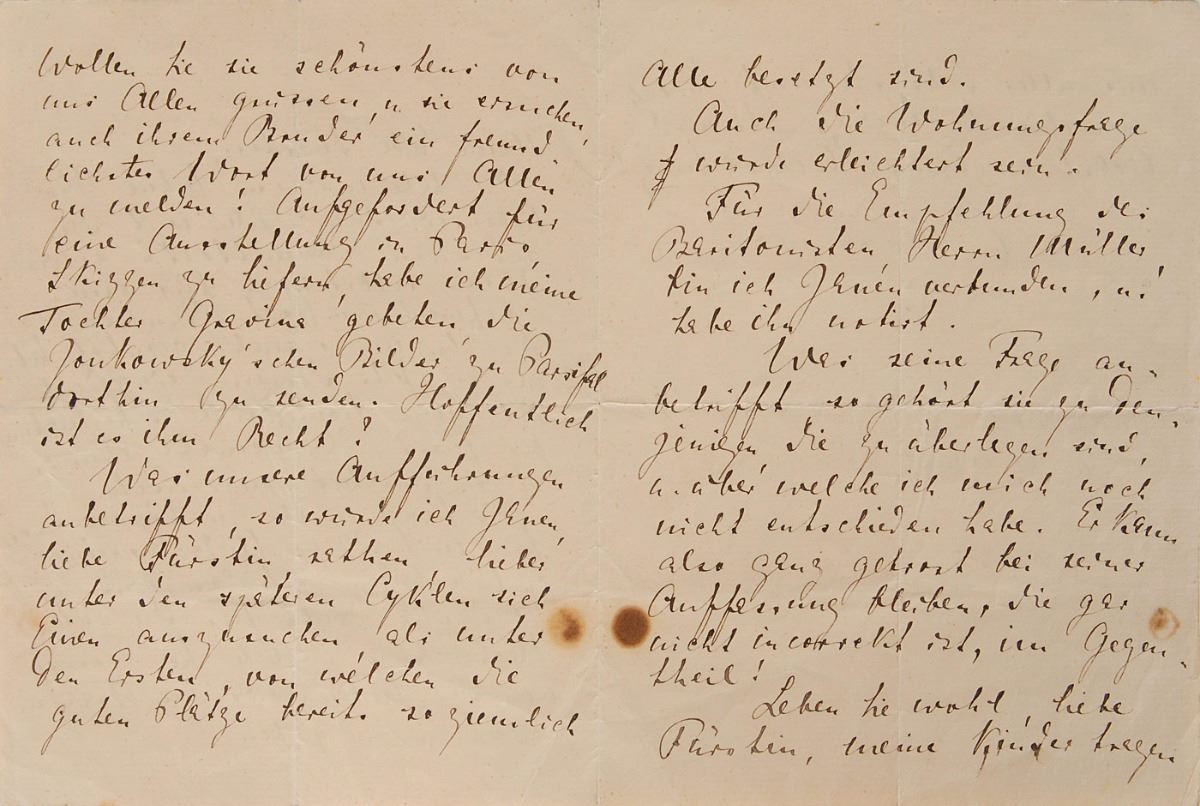 Wollen Sie sie schönstens von
uns Allen grüssen, u. sie ersuchen,
auch ihrem Bruder ein freund
lichstes Wort von uns Allen
zu melden! Aufgefordert für
eine Ausstellung in Paris,
Skizzen zu liefern, habe ich meine
Tochter Gravina gebeten die
Joukowsky'schen Bilder zu Parsifal
dorthin zu senden. Hoffentlich
ist es ihm Recht?
Was unsere Aufführungen
anbetrifft, so würde ich Ihnen,
liebe Fürstin, rathen, lieber
unter den späteren Cyklen sich
Einen auszusuchen, als unter
den Ersten, von welchen die
guten Plätze bereits so ziemlich
Alle besetzt sind.
Auch die Wohnungsfrage
würde erleichtert sein.
Für die Empfehlung des
Baritonisten, Herrn Müller,
bin ich Ihnen verbunden, u.
habe ihn notirt.
Was seine Frage an-
betrifft so gehört sie zu den-
jenigen die zu überlegen sind,
u. über welche ich mich noch
nicht entschieden habe. Er kann
also ganz getrost bei seiner
Auffassung bleiben, die gar
nicht incorrekt ist, im Gegen-
theil!
Leben Sie wohl, liebe
Fürstin, meine Kinder tragen